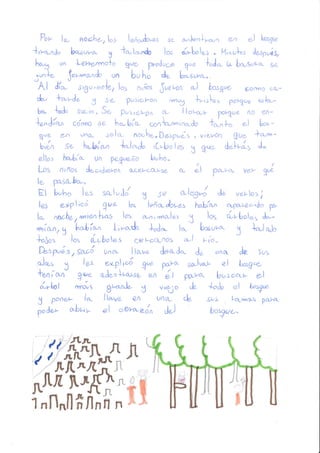 Por la noche, los leñadores se adentran en el bosque
tirando basura y talando los árboles. Minutos después,
hay un terremoto que produce que toda la basura se
junte formando un búho de basura.
Al día siguiente, los niños fueron al bosque como ca-
da tarde y se pusieron muy tristes porque esta-
ba todo sucio. Se pusieron a llorar porque no en-
tendían cómo se había contaminado tanto el bos-
que en una sola noche. Después, vieron que tam-
bién se habían talado árboles y que detrás de
ellos había un pequeño búho.
Los niños decidieron acercarse a él para ver qué
le pasaba.
El búho les saludó y se alegró de verlos;
les explicó que la leñadores habían aparecido por
la noche, mientras los animales y los árboles dor-
mían, y habían tirado toda la basura y talado
todos los árboles cercanos al río.
Después, sacó una llave dorada de una de sus
alas y les explicó que para salvar el bosque
tenían que adentrarse en él para buscar el
árbol más grande y viejo de todo el bosque
y poner la llave en una de sus ramas para
poder abrir el corazón del bosque.